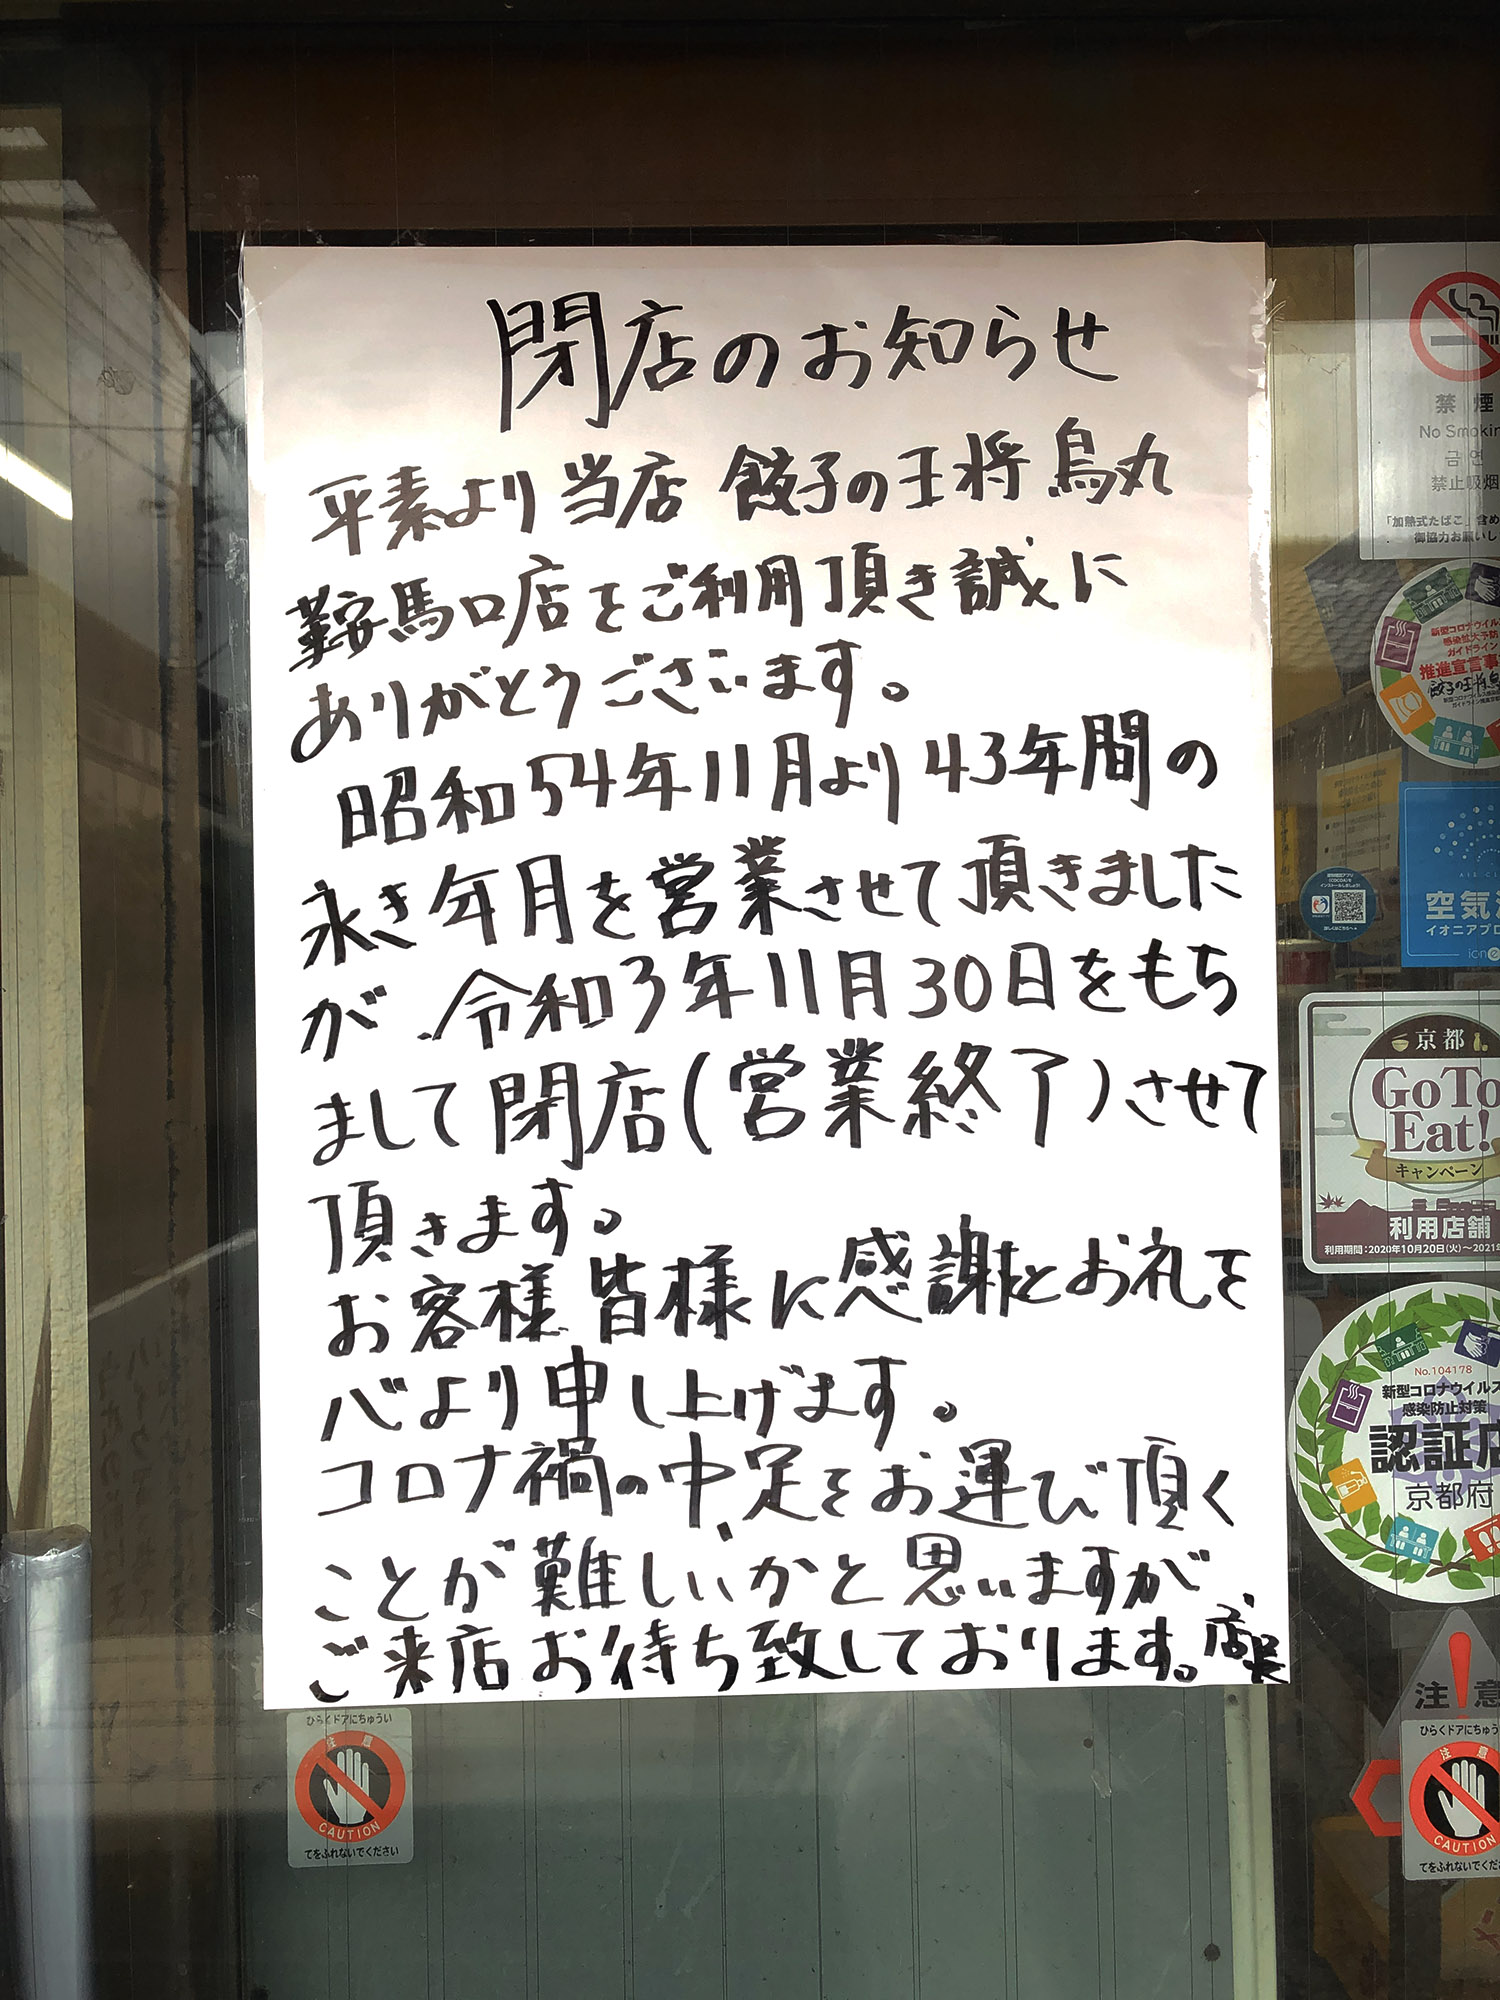 閉店のお知らせ
平素より当店 餃子の王将 烏丸
鞍馬口店をご利用頂き誠に
ありがとうございます。
昭和54年11月より43年間の
永き年月を営業させて頂きました
が、令和3年11月30日をもち
まして閉店(営業終了)させて
頂きます。
お客様皆様に感謝とお礼を
心より申し上げます。
コロナ禍の中、足をお運び頂く
ことが難しいかと思いますが、
ご来店お待ち致しております。店長
禁煙
No Smokin
금연
禁止吸烟
「加熱式たばこ」含め
御協力お願いし
新型コロナウイルス
感染拡大予防
ガイドライン
推進宣言事
餃子の王将
空気
イオニアプロ
京都
Go To
Eat!
キャンペーン
利用店舗
利用期間:2020年10月20日(火)～2021年
No.104178
新型コロナウイルス
感染防止対策
認証店
京都府
注意
ひらくドアにちゅうい
注意
CAUTION
てをふれないでください
ひらくドアにちゅうい
注意
CAUTION
てをふれないでくださ